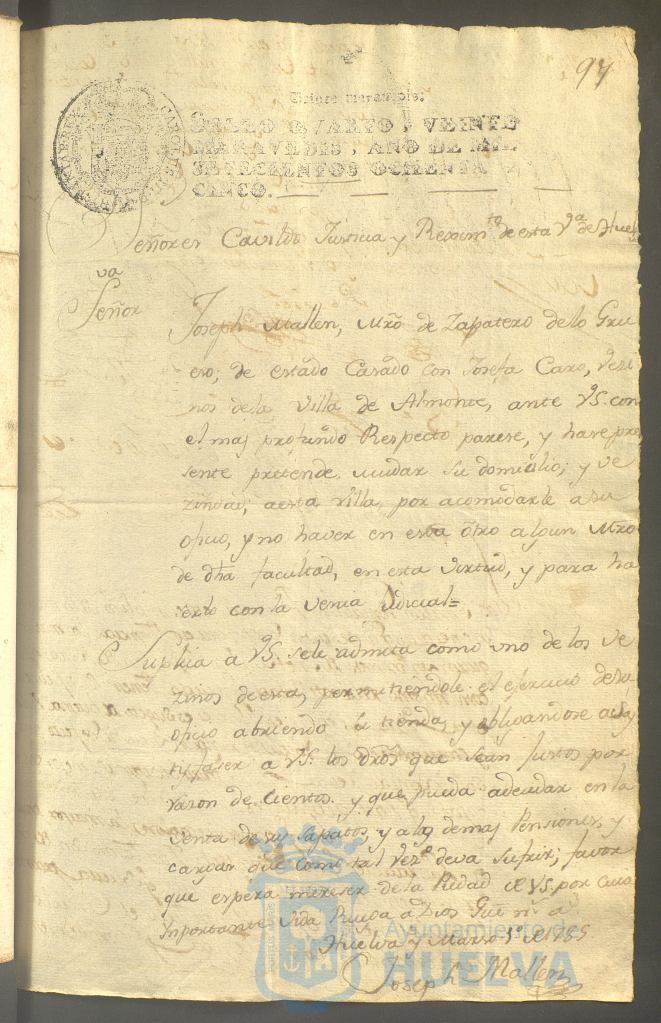 97
Veinte maravedis.
SELLO QVARTO, VEINTE
MARAVEDIS, AÑO DE MIL
SETECIENTOS OCHENTA Y
CINCO.
Señores Cavildo Justicia y Reximto de esta Va de Huel
va
Señor
Joseph Mallen, Mro de Zapatero de lo Gru
eso; de estado Casado con Josefa Caro, vezi
nos de la Villa de Almonte, ante VS. con
el mas profundo Respecto parese, y hase pre
sente pretende mudar su domicilio; y ve
zindad, a esta villa, por acomodarle a su
oficio, y no haver en esta otro algun Mro
de dha facultad, en esta virtud, y para ha
serlo con la venia Judicial=
Suplica a VS. se le admita como uno de los ve
zinos de esta, permitiendole el ejercicio de su
oficio abriendo tienda, y obligandose a sa
tisfaser a VS. los dros que sean Justos por
razon de Cientos y que pueda adeudar en la
venta de sus sapatos, y a las demas Pensiones, y
cargas que como tal vezo deva sufrir; favor
que espera mereser de la Piedad de VS. por cuia
Inportante vida Ruega a Dios Gue ms as
Huelva y Marzo 1o de 1785
Joseph Mallen
Ayuntamiento de
HUELVA